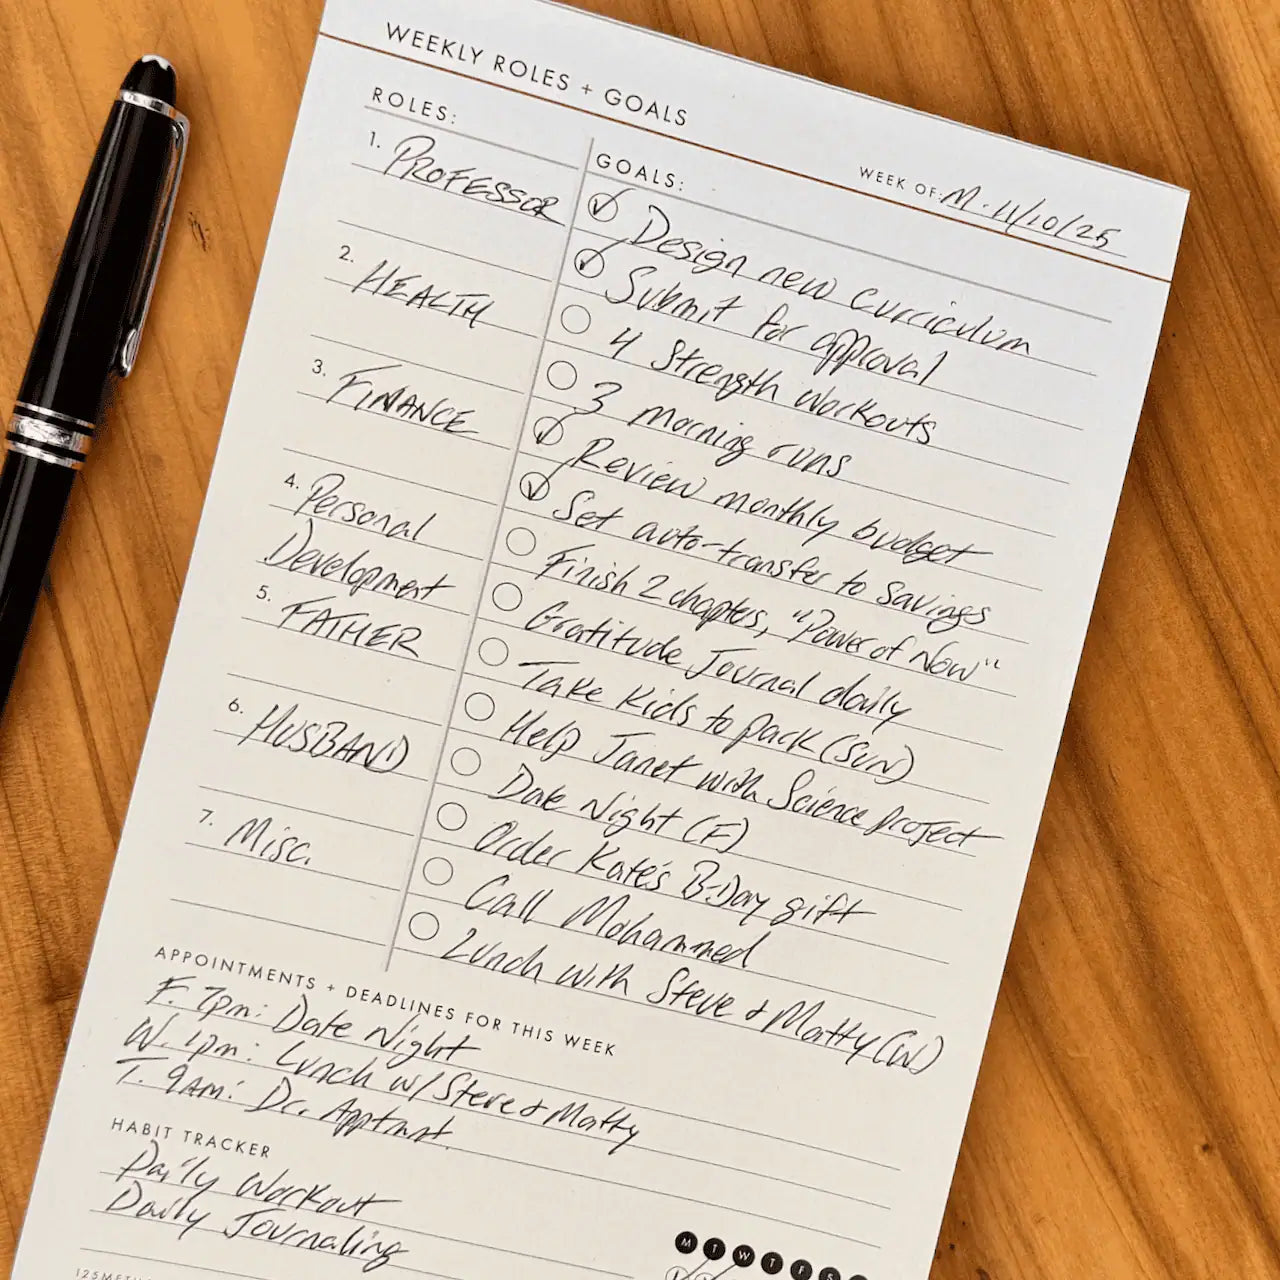 WEEKLY ROLES + GOALS
WEEK OF: M. 11/10/25
ROLES:
1. PROFESSOR
2. HEALTH
3. FINANCE
4. Personal
Development
5. FATHER
6. HUSBAND
7. Misc.
GOALS:
Design new curriculum
Submit for approval
4 Strength Workouts
3 morning runs
Review monthly budget
Set auto-transfer to savings
Finish 2 chapters, "Power of Now"
Gratitude Journal daily
Take kids to park (SUN)
Help Janet with Science project
Date Night (F)
Order Kate's B-Day gift
Call Mohammed
Lunch with Steve & Matty (W)
APPOINTMENTS + DEADLINES FOR THIS WEEK
F. 7pm: Date Night
W. 1pm: Lunch w/ Steve & Matty
T. 9AM: Dr. Apptmnt.
HABIT TRACKER
M T W T F S
Daily Workout
Daily Journaling